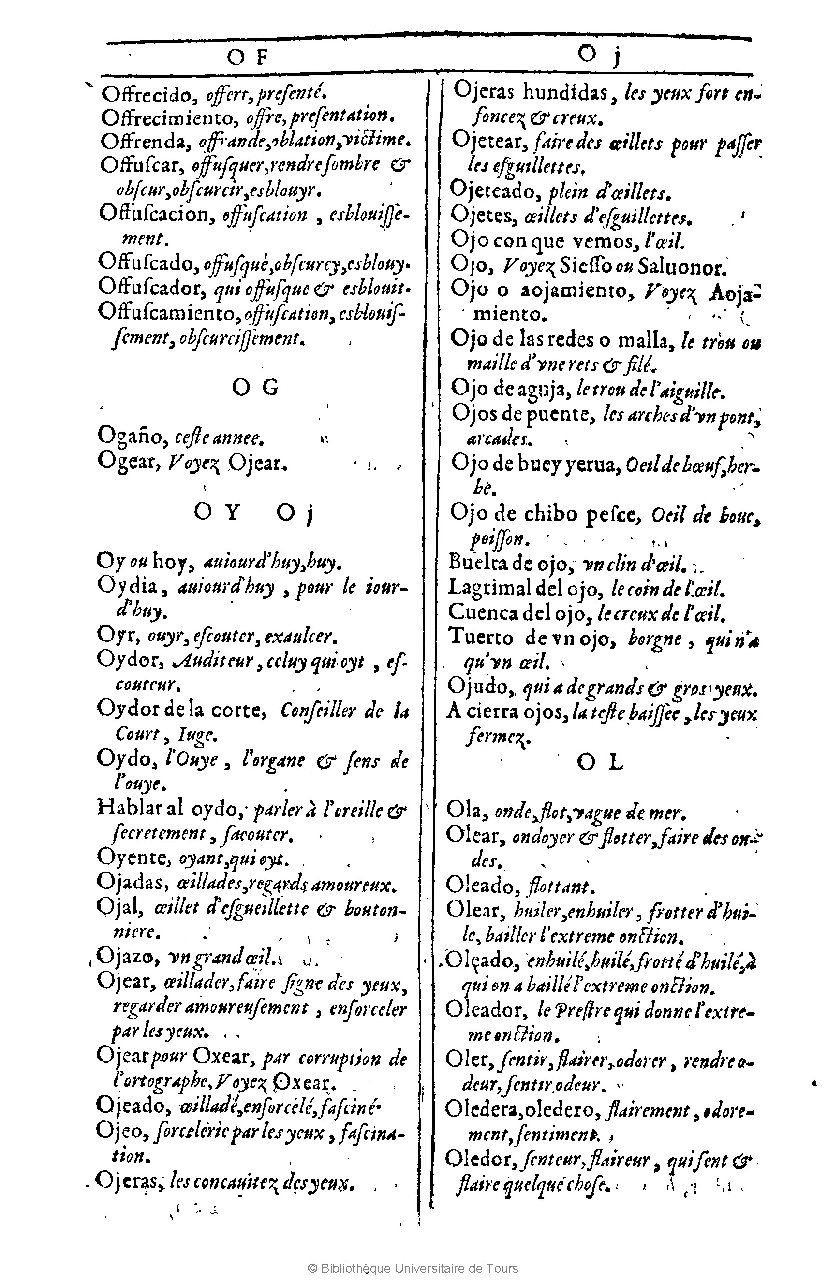 O F
Offrecido, offert, preſenté.
Offrecimiento, offre, preſentation.
Offrenda, offrande, oblation, victime.
Offuſcar, offuſquer, rendre ſombre &
obſcur, obſcurcir, esblouyr.
Offuſcacion, offuſcation, esblouiſſe-
ment.
Offuſcado, offuſqué, obſcurcy, esblouy.
Offuſcador, qui offuſque & esblouit.
Offuſcamiento, offuſcation, esblouiſ-
ſement, obſcurciſſement.
O G
Ogaño, ceſte annee.
Ogear, Voyez Ojear.
O Y Oj
Oy ou hoy, auiourd'huy, huy.
Oydia, auiourd'huy, pour le iour-
d'huy.
Oyr, ouyr, eſcouter, exaulcer.
Oydor, Auditeur, celuy qui oyt, eſ-
couteur.
Oydor de la corte, Conſeiller de la
Court, Iuge.
Oydo, l'Ouye, l'organe & ſens de
l'ouye.
Hablar al oydo, parler à l'oreille &
ſecretement, ſacouter.
Oyente, oyant, qui oyt.
Ojadas, œillades, regards amoureux.
Ojal, œillet d'eſgueillette & bouton-
niere.
Ojazo, vn grand œil.
Ojear, œillader, faire ſigne des yeux,
regarder amoureuſement, enſorceler
par les yeux.
Ojear pour Oxear, par corruption de
l'ortographe, Voyez Oxear.
Ojeado, œilladé, enſorcelé, faſciné
Ojeo, ſorcelerie par les yeux, faſcina-
tion.
Ojeras, les concauitez des yeux.
O j
Ojeras hundidas, les yeux fort en-
foncez & creux.
Ojetear, faire des œillets pour paſſer
les eſguillettes.
Ojeteado, plein d'œillets.
Ojetes, œillets d'eſguillettes.
Ojo con que vemos, l'œil.
Ojo, Voyez Sieſſo ou Saluonor.
Ojo o aojamiento, Voyez Aoja-
miento.
Ojo de las redes o malla, le trou ou
maille d'vne rets & filé.
Ojo de aguja, le trou de l'aiguille.
Ojos de puente, les arches d'vn pont,
arcades.
Ojo de buey yerua, Oeil de bœuf, her-
be.
Ojo de chibo peſce, Oeil de bouc,
poiſſon.
Buelta de ojo, vn clin d'œil.
Lagrimal del ojo, le coin de l'œil.
Cuenca del ojo, le creux de l'œil.
Tuerto de vn ojo, borgne, qui n'a
qu'vn œil.
Ojudo, qui a de grands & gros yeux.
A cierra ojos, la teſte baiſſee, les yeux
fermez.
O L
Ola, onde, flot, vague de mer.
Olear, ondoyer & flotter, faire des on-
des.
Oleado, flottant.
Olear, huiler, enhuiler, frotter d'hui-
le, bailler l'extreme onction.
Olçado, enhuilé, huilé, frotté d'huilé, à
qui on a baillé l'extreme onction.
Oleador, le Preſtre qui donne l'extre-
me onction.
Oler, ſentir, flairer, odorer, rendre o-
deur, ſentir odeur.
Oledera, oledero, flairement, odore-
ment, ſentiment.
Oledor, ſenteur, flaireur, qui ſent &
flaire quelque choſe.
© Bibliothèque Universitaire de Tours